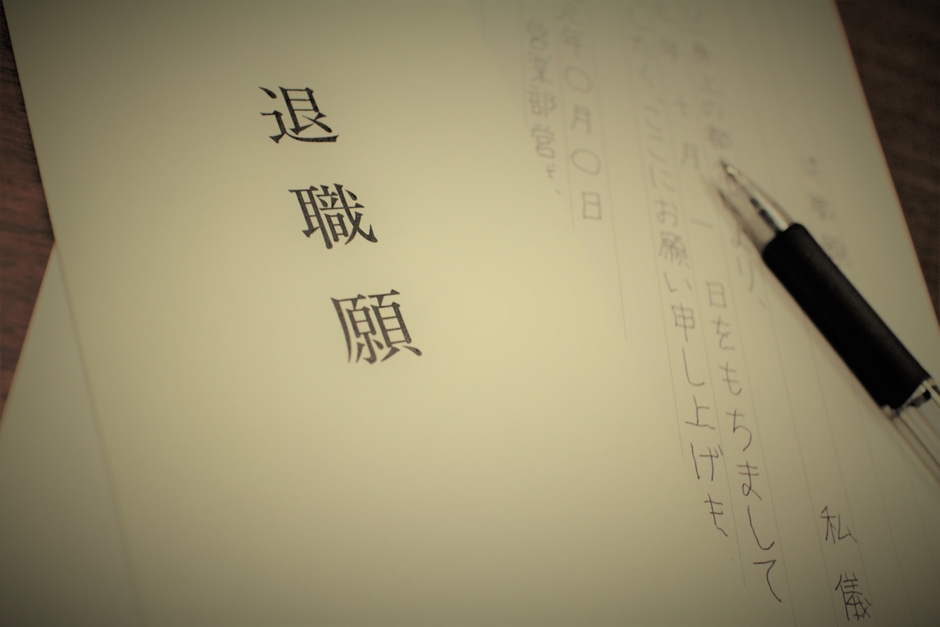 退職願
私儀
都　より、
十月一日をもちまして
したくここにお願い申し上げま
年〇月〇日
営業部営